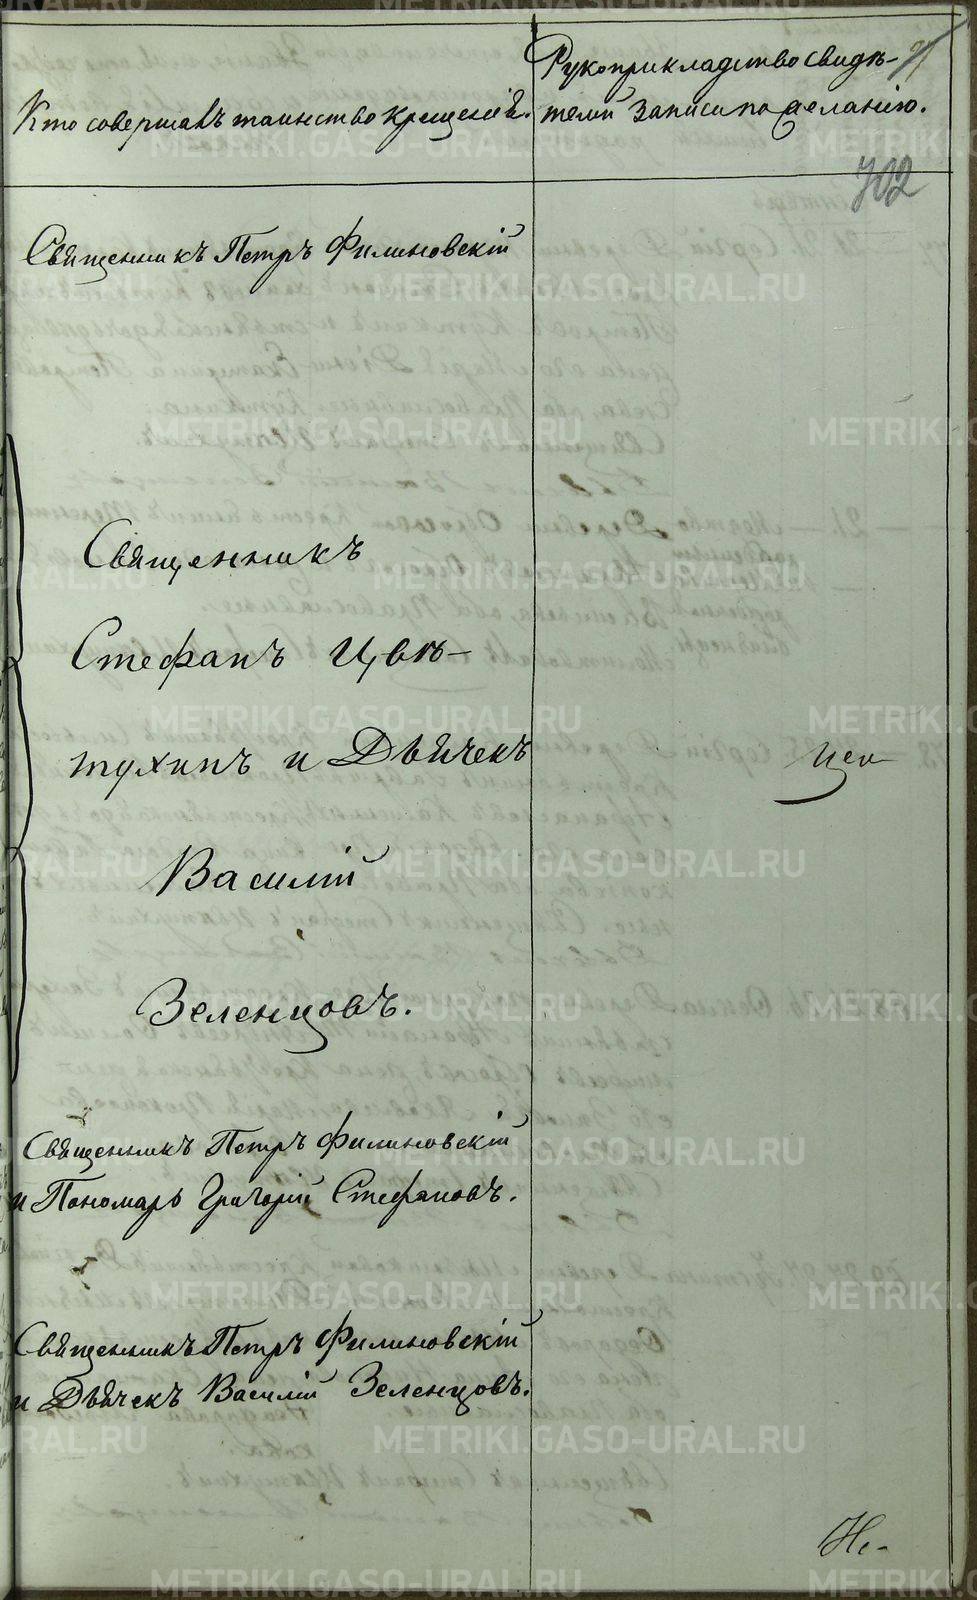 Кто совершалъ таинство крещенія.
Рукоприкладство свидѣ-
телей записи по желанію.
702
Священникъ Петръ Филиновскій
Священникъ
Стефанъ Цвѣ-
тухинъ и Дьячекъ
Василій
Зеленцовъ.
Священникъ Петръ Филиновскій
и Пономарь Григорій Стефановъ.
Священникъ Петръ Филиновскій
и Дьячекъ Василій Зеленцовъ.
Не-
METRIKI.GASO-URAL.RU